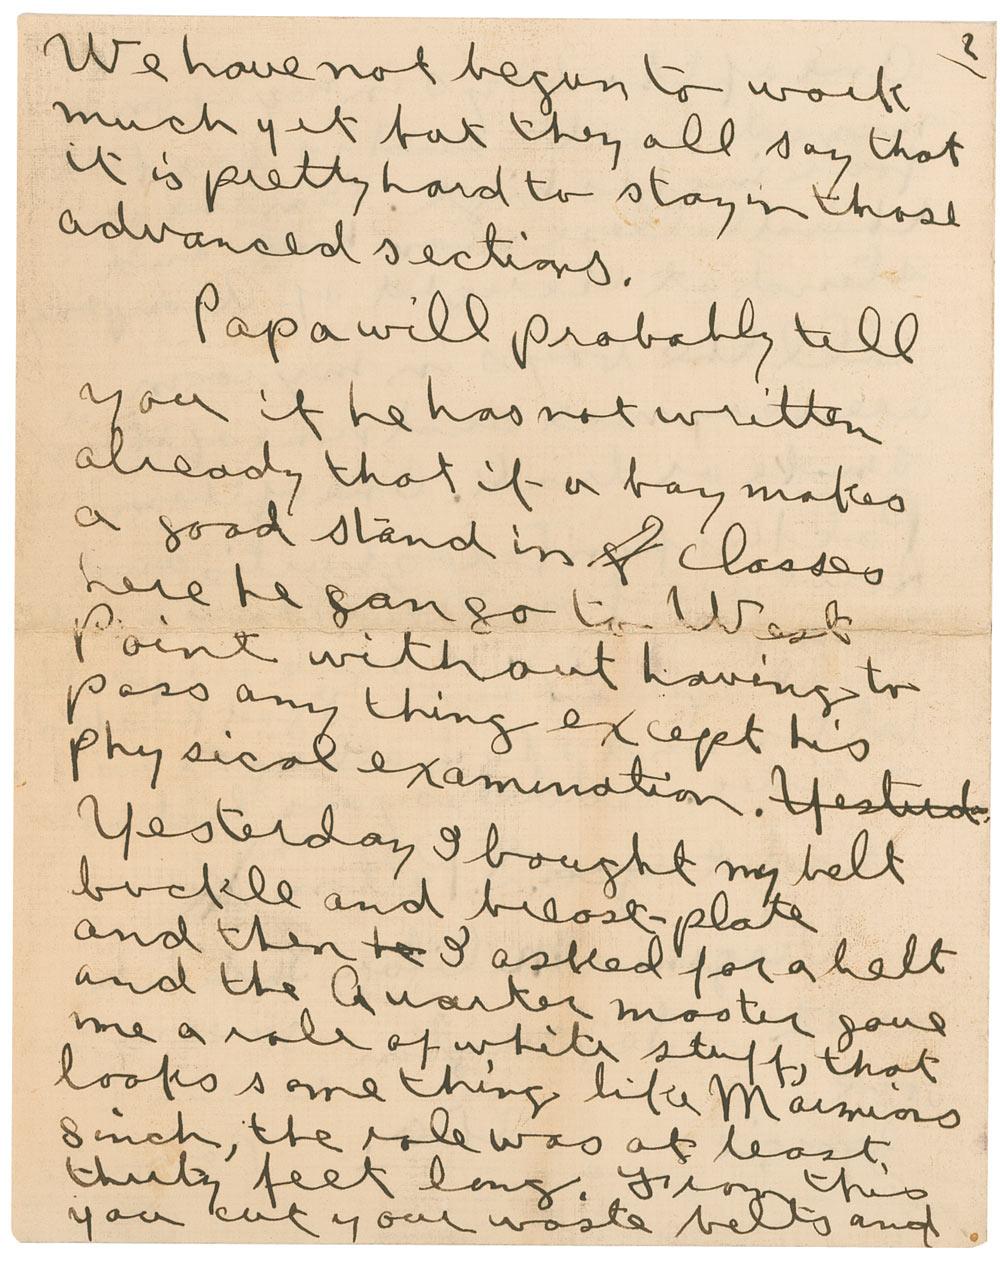 2
We have not begun to work
much yet but they all say that
it is pretty hard to stay in those
advanced sections.
Papa will probably tell
you if he has not written
already that if a boy makes
a good stand in classes
here he gan go to West
Point without having to
pass any thing except his
physical examination. Yesterd
Yesterday I bought my belt
buckle and breast-plate
and then he I asked for a belt
and the Quarter master gave
me a role of white stuff, that
looks something like Marmions
sinch, the role was at least
thirty feet long. From this
you cut your waste belts and